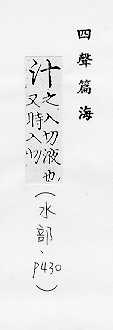 四聲篇海
汁之入切液也
又時入切
(水部、p430)